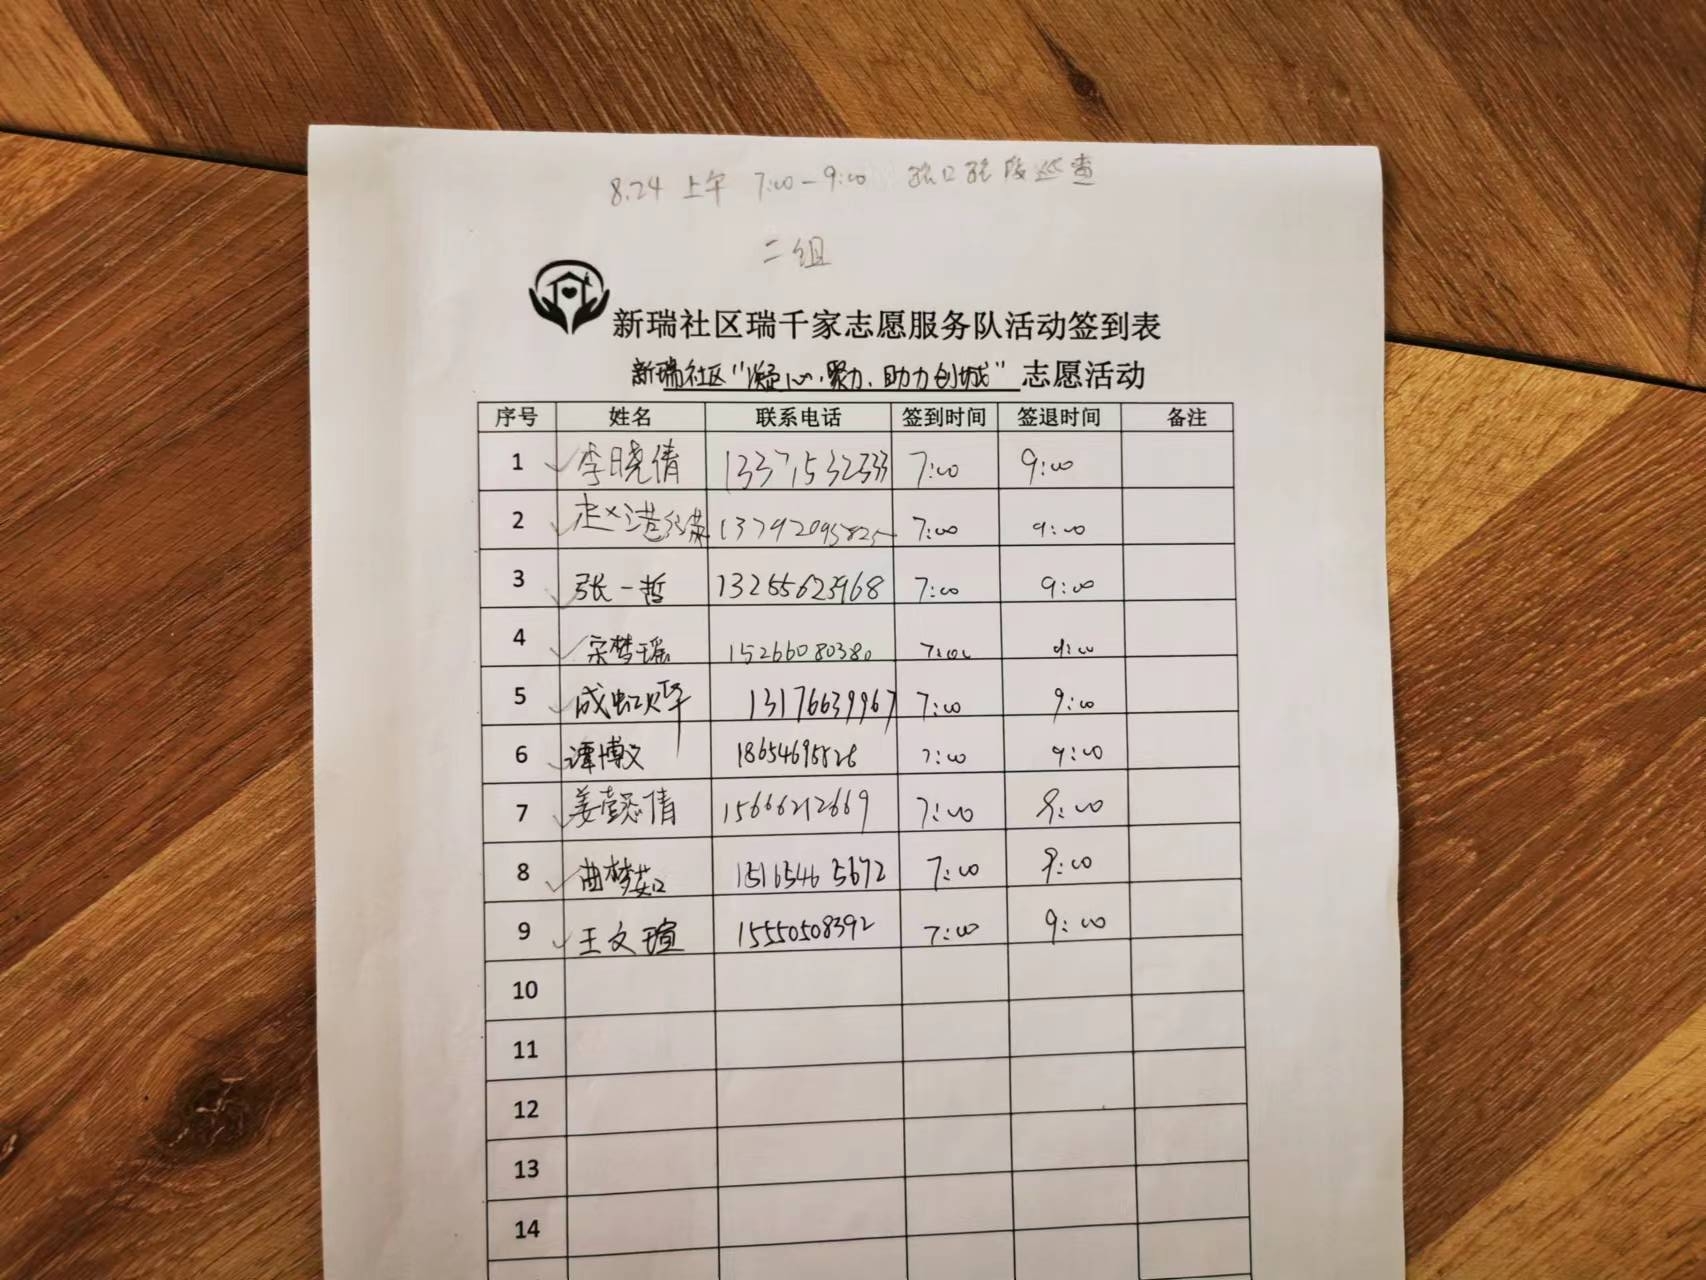 8.24 上午 7:00-9:00 路口路段巡查
二组
新瑞社区瑞千家志愿服务队活动签到表
新瑞社区"凝心聚力、助力创城"志愿活动
序号 姓名 联系电话 签到时间 签退时间 备注
1 李晓倩 13371532333 7:00 9:00
2 赵港 13792095825 7:00 9:00
3 张一哲 13255623968 7:00 9:00
4 宋梦瑶 15266080380 7:00 9:00
5 成虹烨 13176639967 7:00 9:00
6 谭博文 18654695826 7:00 9:00
7 姜懿倩 15666212669 7:00 9:00
8 曲梦茹 15165465672 7:00 9:00
9 王文瑄 15550508392 7:00 9:00
10
11
12
13
14